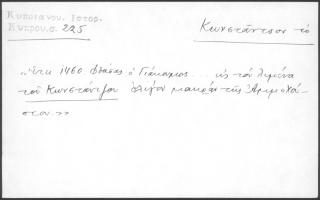 Κυπριανου. Ιστορ.
Κυπρου.σ. 225
Κωνστάντσον τὸ
"Ἔτει 1460 φθάσας ὁ Γιάκουμος ... εἰς τὸν λιμένα
τοῦ Κωνστάντζου ὀλίγον μακρὰν τῆς Ἀμμοχώ-
στου.»